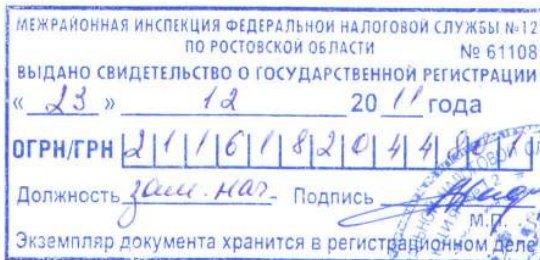 МЕЖРАЙОННАЯ ИНСПЕКЦИЯ ФЕДЕРАЛЬНОЙ НАЛОГОВОЙ СЛУЖБЫ №12
ПО РОСТОВСКОЙ ОБЛАСТИ № 61108
ВЫДАНО СВИДЕТЕЛЬСТВО О ГОСУДАРСТВЕННОЙ РЕГИСТРАЦИИ
« 23 » 12 20 11 года
ОГРН/ГРН 2116182044801
Должность зам. нач. Подпись
М.П.
Экземпляр документа хранится в регистрационном деле